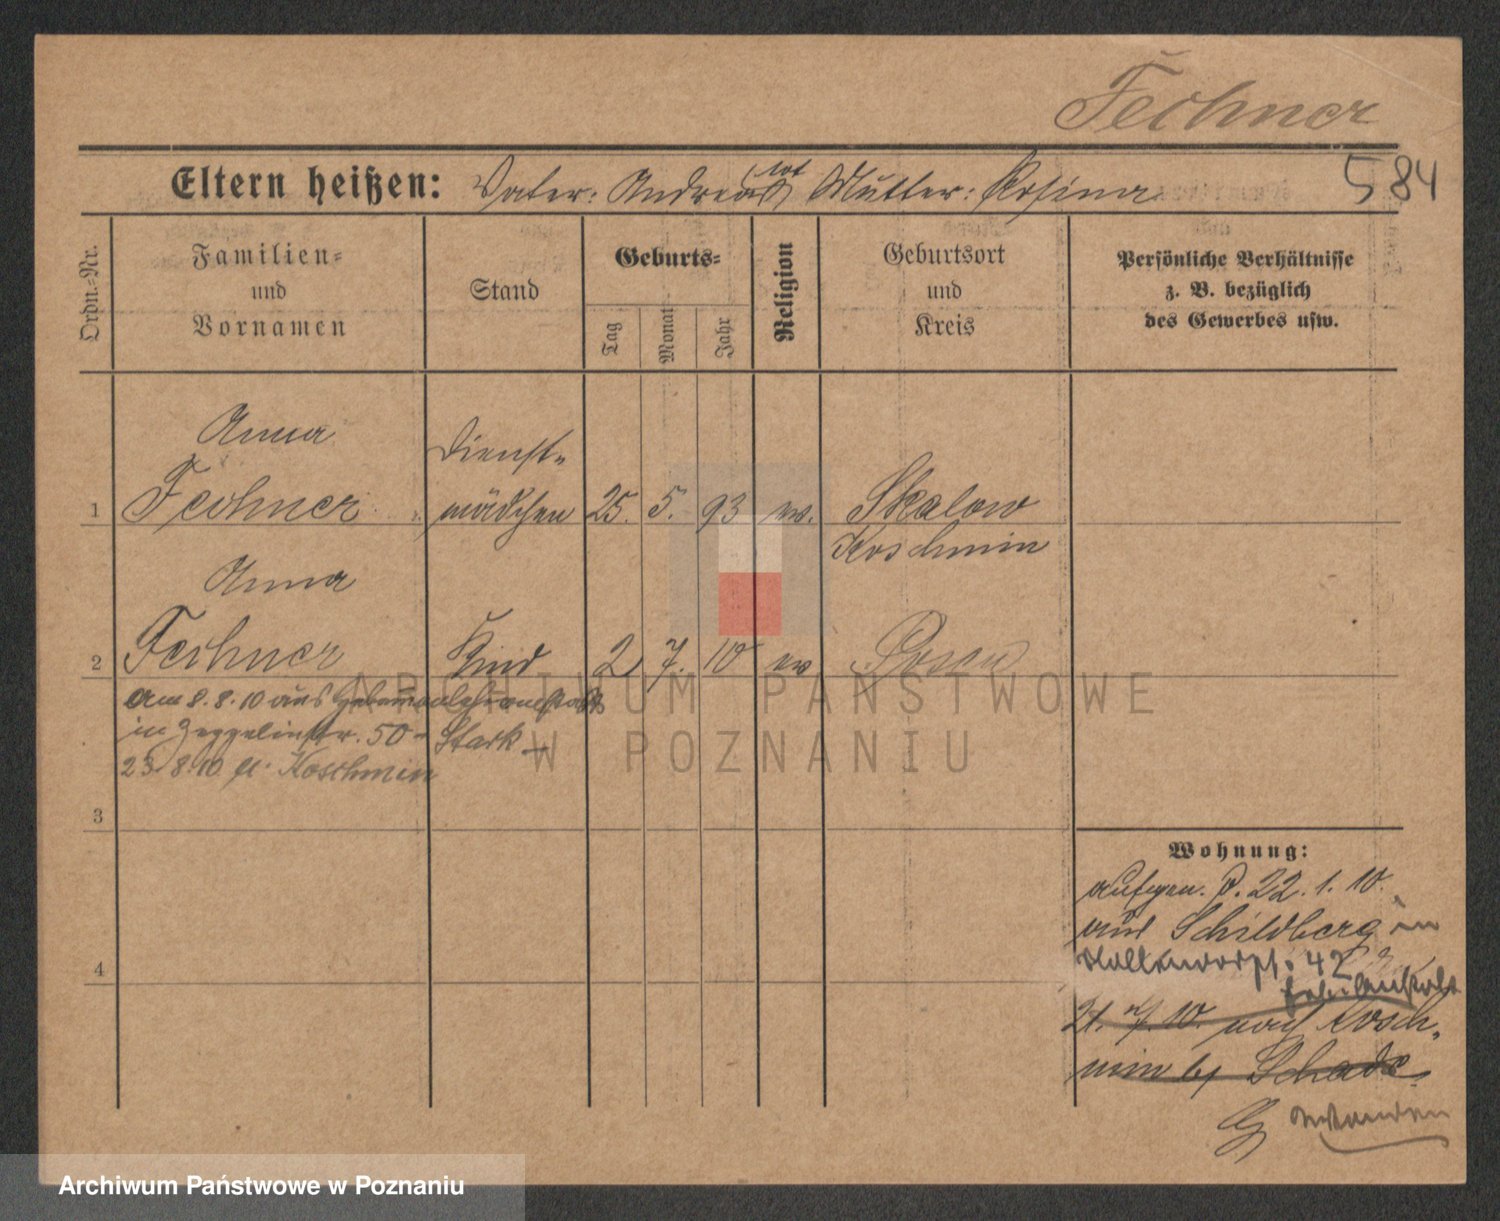 Fechner
584
Eltern heißen: Vater: Andreas (tot) Mutter: Rosina
Ordn.-Nr.
Familien- und Vornamen
Stand
Geburts-
Tag
Monat
Jahr
Religion
Geburtsort und Kreis
Persönliche Verhältnisse
z. B. bezüglich
des Gewerbes usw.
Anna
Dienst-
1 Fechner mädchen 25. 5. 93 ev. Skalow
Koschmin
Anna
2 Fechner Kind 2 7. 10 ev Posen
Am 8.8.10 aus Hebammenlehranstalt
in Zeppelinstr. 50 - Stark -
23.8.10 Koschmin
3
4
Wohnung:
22. 1. 10.
aus Schildberg in
42
21. 7. 10. nach Kosch-
min Schade
ARCHIWUM PAŃSTWOWE
W POZNANIU
Archiwum Państwowe w Poznaniu